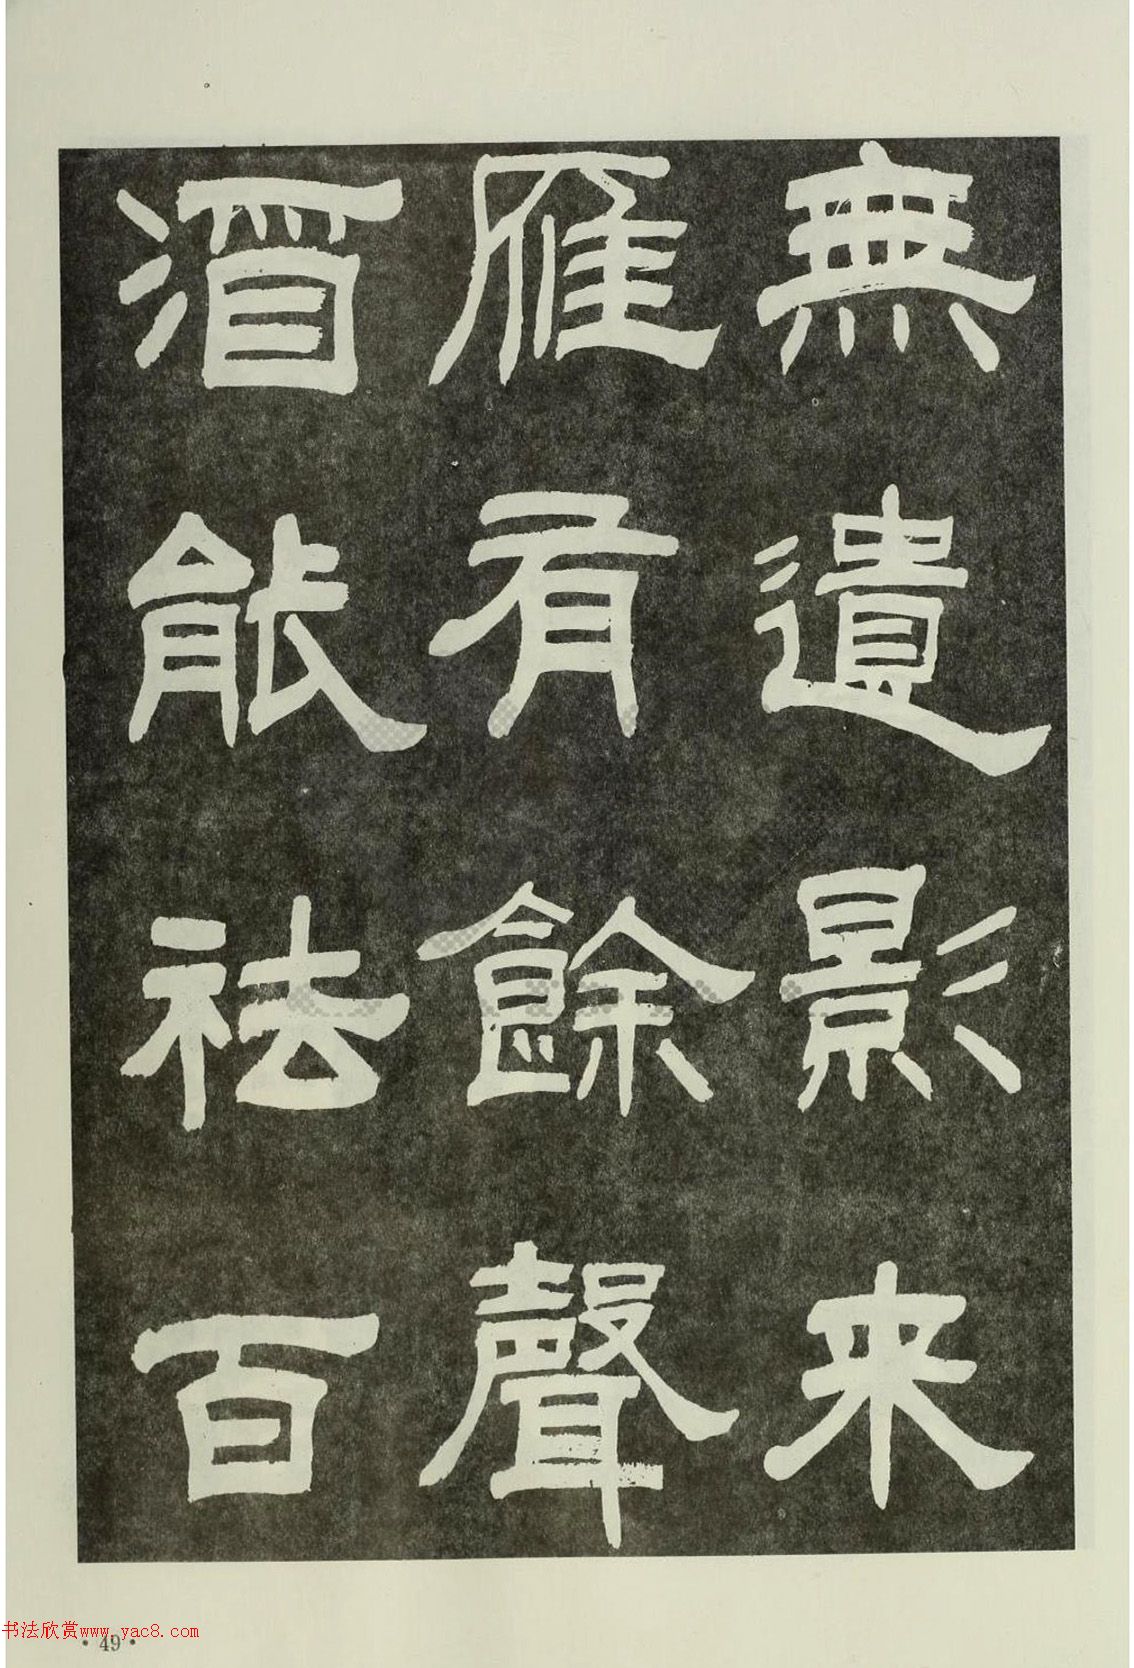 無遺影来
雁有餘聲
酒能祛百
书法欣赏www.yac8.com
·49·